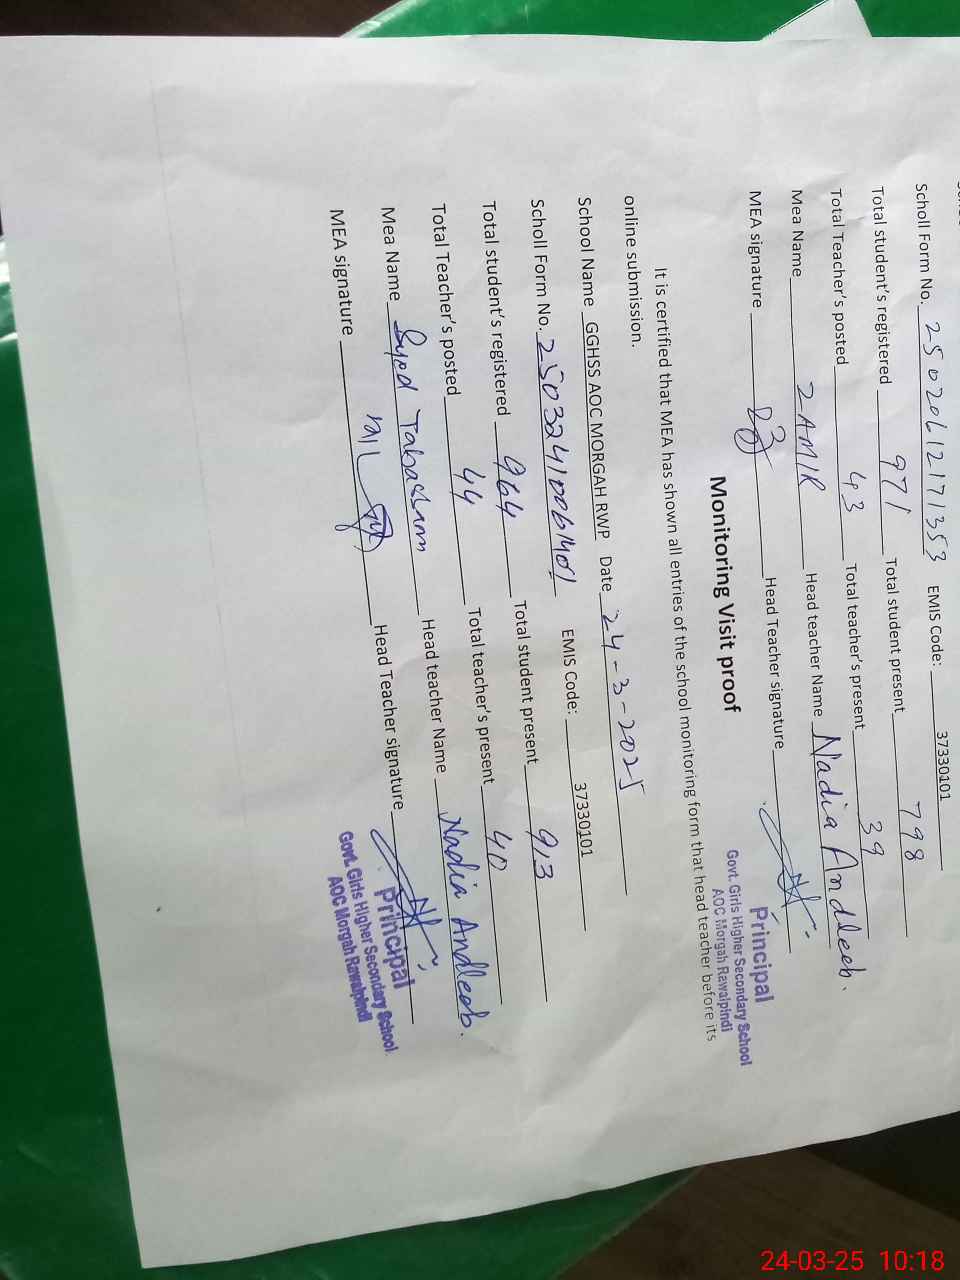 Scholl Form No. 25020612171353 EMIS Code: 37330101
Total student's registered 971 Total student present 798
Total Teacher's posted 43 Total teacher's present 39
Mea Name ZAMIR Head teacher Name Nadia Andleeb.
MEA signature Head Teacher signature
Principal
Govt. Girls Higher Secondary School
AOC Morgah Rawalpindi
Monitoring Visit proof
It is certified that MEA has shown all entries of the school monitoring form that head teacher before its
online submission.
School Name GGHSS AOC MORGAH RWP Date 24-3-2025
Scholl Form No. EMIS Code: 37330101
Total student's registered 964 Total student present 913
Total Teacher's posted 44 Total teacher's present 40
Mea Name Syed Tabassum Head teacher Name Nadia Andleeb.
MEA signature Head Teacher signature
Principal
Govt. Girls Higher Secondary School
AOC Morgah Rawalpindi
24-03-25 10:18